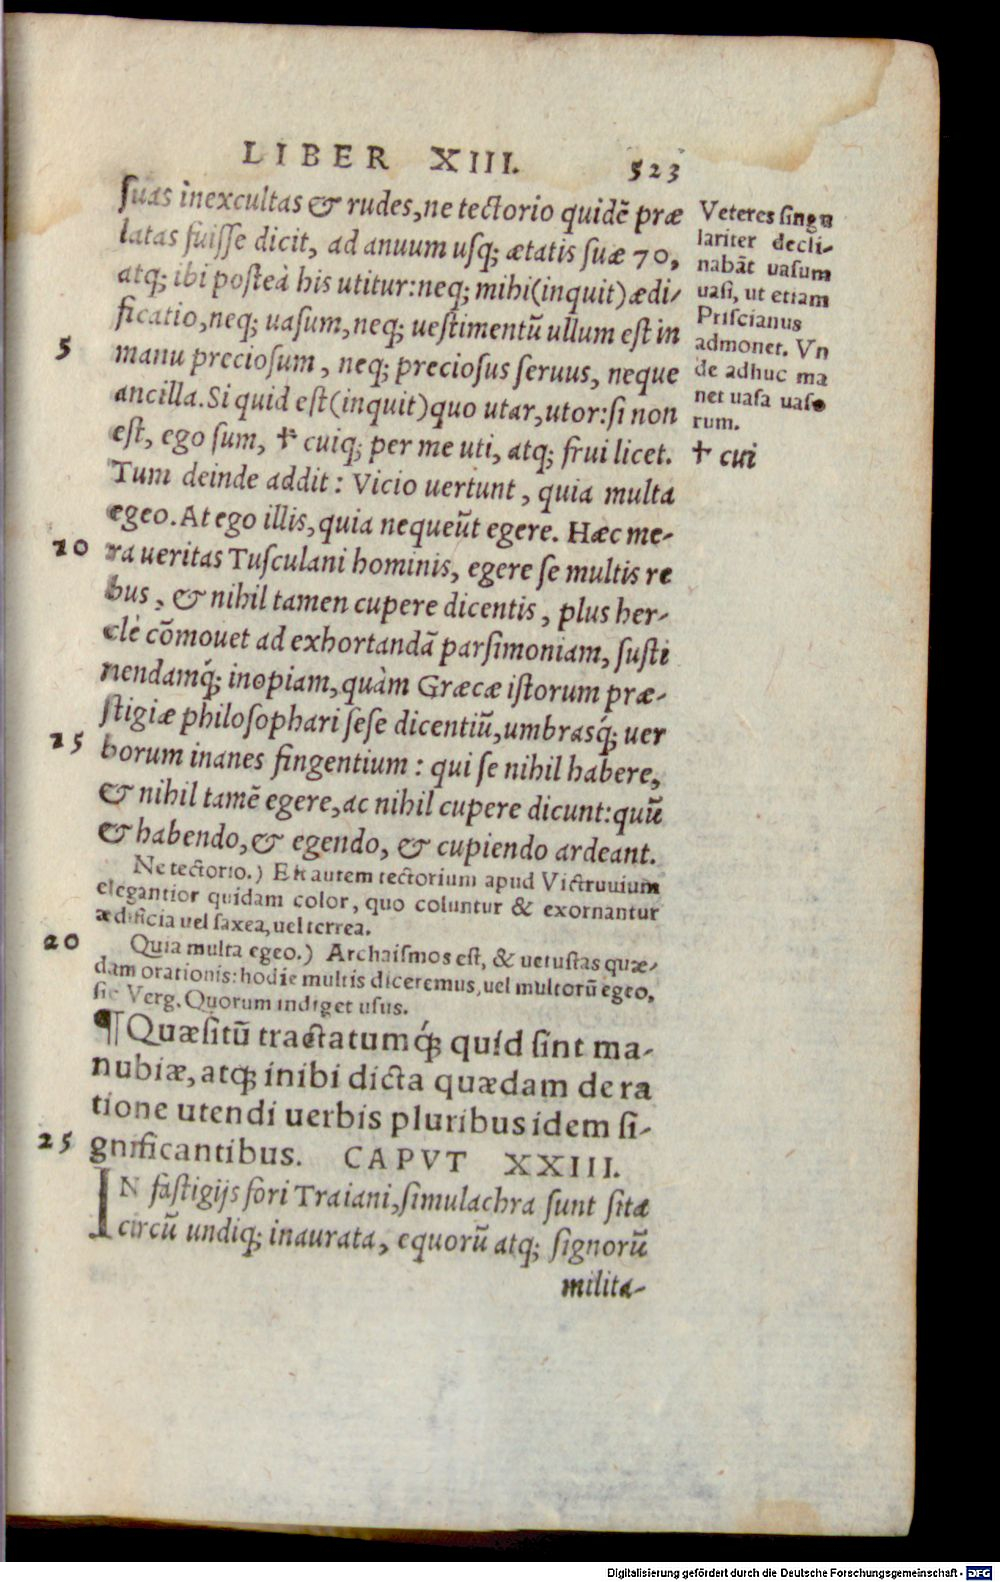 LIBER XIII. 523
suas inexcultas & rudes, ne tectorio quidẽ præ
latas fuisse dicit, ad anuum usq; ætatis suæ 70,
atq; ibi posteà his utitur: neq; mihi (inquit) ædi-
ficatio, neq; uasum, neq; uestimentũ ullum est in
5 manu preciosum, neq; preciosus seruus, neque
ancilla. Si quid est (inquit) quo utar, utor: si non
est, ego sum, † cuiq; per me uti, atq; frui licet.
Tum deinde addit: Vicio uertunt, quia multa
egeo. At ego illis, quia nequeũt egere. Hæc me-
10 ra ueritas Tusculani hominis, egere se multis re
bus, & nihil tamen cupere dicentis, plus her-
clè cõmouet ad exhortandã parsimoniam, susti
nendamq́; inopiam, quàm Græcæ istorum præ-
stigiæ philosophari sese dicentiũ, umbrasq́; uer
25 borum inanes fingentium: qui se nihil habere,
& nihil tamẽ egere, ac nihil cupere dicunt: quũ
& habendo, & egendo, & cupiendo ardeant.
Ne tectorio.) Est autem tectorium apud Victruuium
elegantior quidam color, quo coluntur & exornantur
ædificia uel saxea, uel terrea.
20 Quia multa egeo.) Archaismos est, & uetustas quæ-
dam orationis: hodie multis diceremus, uel multorũ egeo,
sic Verg. Quorum indiget usus.
¶ Quæsitũ tractatumq́; quid sint ma-
nubiæ, atq; inibi dicta quædam de ra
tione utendi uerbis pluribus idem si-
25 gnificantibus. CAPVT XXIII.
IN fastigijs fori Traiani, simulachra sunt sita
circũ undiq; inaurata, equorũ atq; signorũ
milita-
Veteres singu
lariter decli-
nabãt uasum
uasi, ut etiam
Priscianus
admonet. Vn
de adhuc ma
net uasa uaso
rum.
† cui
Digitalisierung gefördert durch die Deutsche Forschungsgemeinschaft - DFG